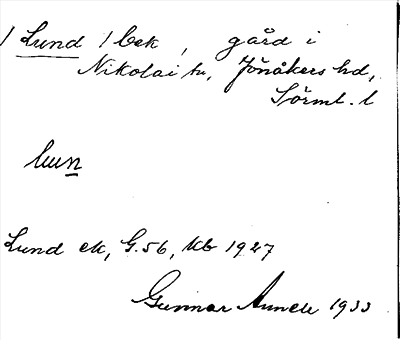 1 Lund /bek, gård i
Nikolai sn, Jönåkers hd,
Sörml. l
lun
Lund ek, G.56, Kb 1927
Gunnar Annell 1933